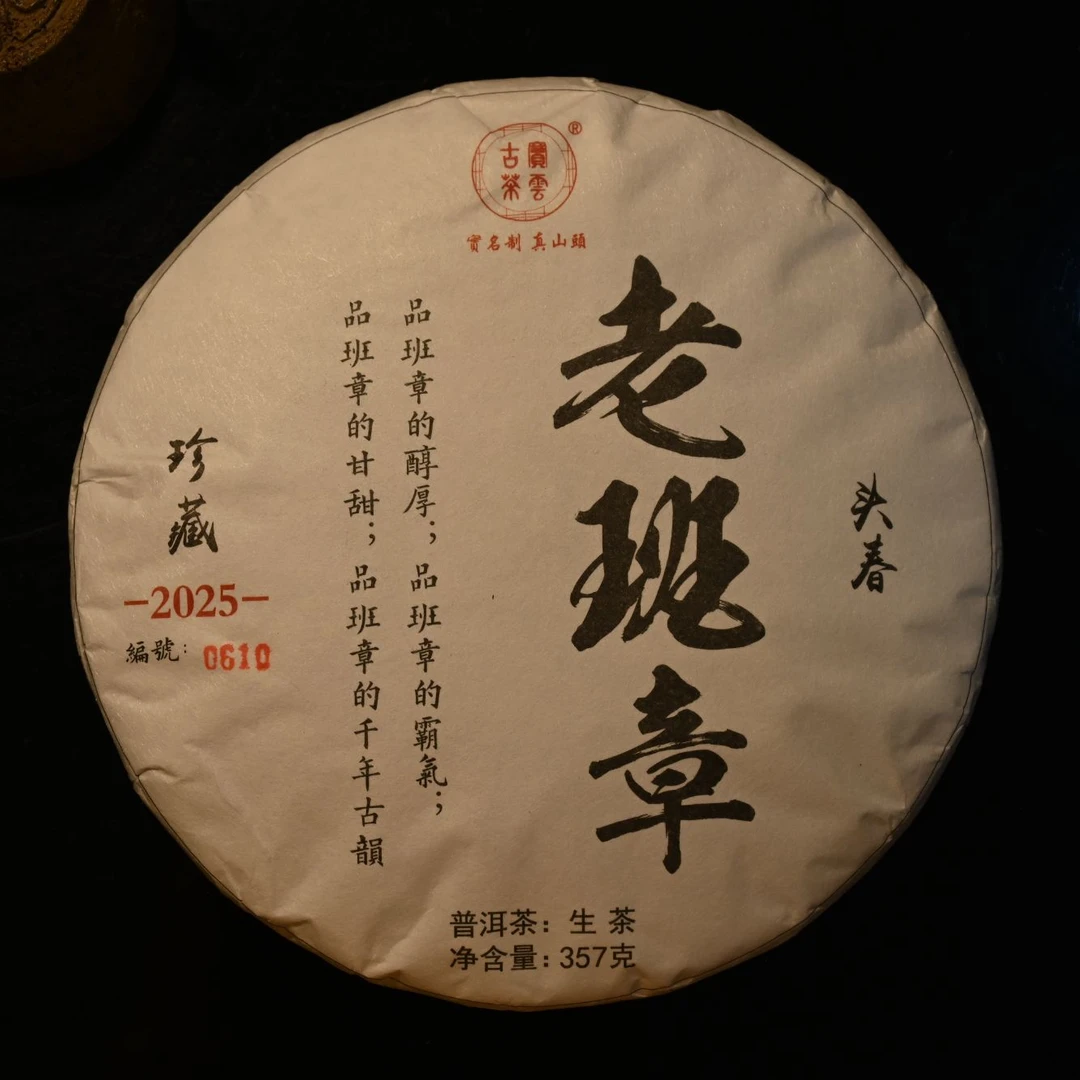 雲
古茶
®
實名制 真山頭
头春
老班章
品班章的醇厚；品班章的霸氣；
品班章的甘甜；品班章的千年古韻
珍藏
-2025-
編號：0610
普洱茶：生 茶
净含量：357克